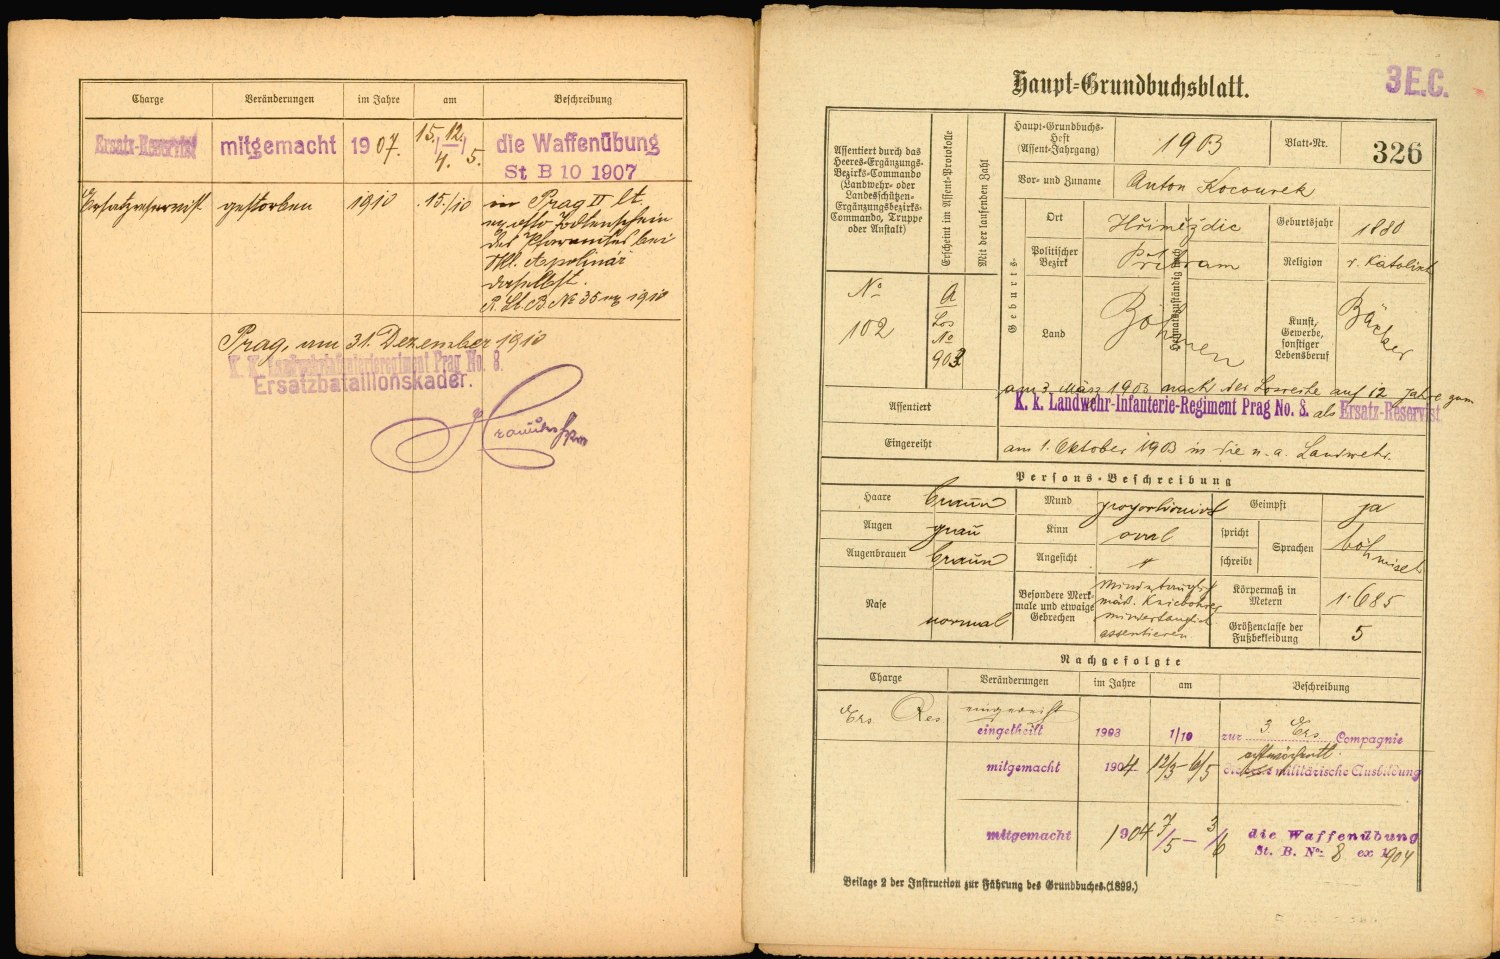 Charge Veränderungen im Jahre am Beschreibung
Ersatz-Reservist mitgemacht 1907. 15./4. 12./5. die Waffenübung
St B 10 1907
Ersatzreservist gestorben 1910 15./10 in Prag II lt.
Todtenschein
des Pfarramtes bei
Hl. Apolinár
daselbst.
B. No 35 ex 1910
Prag, am 31. Dezember 1910
K. K. Landwehrinfanterieregiment Prag No. 8.
Ersatzbataillonskader.
Haupt-Grundbuchsblatt.
3 E.C.
Assentiert durch das
Heeres-Ergänzungs-
Bezirks-Commando
(Landwehr- oder
Landesschützen-
Ergänzungsbezirks-
Commando, Truppe
oder Anstalt)
Erscheint im Assent-Protokolle
Mit der laufenden Zahl
No
102
A
Los
No
903
Haupt-Grundbuchs-
Heft
(Assent-Jahrgang)
1903
Blatt-Nr.
326
Vor- und Zuname Anton Kocourek
Geburts-
Heimatszuständig nach
Ort Hřiměždic
Geburtsjahr 1880
Politischer
Bezirk
Přibram
Religion r. Katolisch
Land Böhmen
Kunst,
Gewerbe,
sonstiger
Lebensberuf
Bäcker
Assentiert
am 3. März 1903 nach der Losreihe auf 12 Jahre zum
K. k. Landwehr-Infanterie-Regiment Prag No. 8. als Ersatz-Reservist
Eingereiht am 1. Oktober 1903 in die n. a. Landwehr.
Persons-Beschreibung
Haare braun Mund proportionirt Geimpft ja
Augen grau Kinn oval spricht
schreibt
Sprachen böhmisch
Augenbrauen braun Angesicht "
Nase normal
Besondere Merk-
male und etwaige
Gebrechen
mindertauglich
mäß. Kniebohrer
mindertauglich
assentieren
Körpermaß in
Metern
1·685
Größenclasse der
Fußbekleidung
5
Nachgefolgte
Charge Veränderungen im Jahre am Beschreibung
Ers. Res eingereiht
eingetheilt 1903 1/10 zur 3 Ers. Compagnie
achtwöchentl.
mitgemacht 1904 12/3 - 6/5 die militärische Ausbildung
mitgemacht 1904 7/5 - 3/6 die Waffenübung
St. B. No: 8 ex 1904
Beilage 2 der Instruction zur Führung des Grundbuches (1899.)